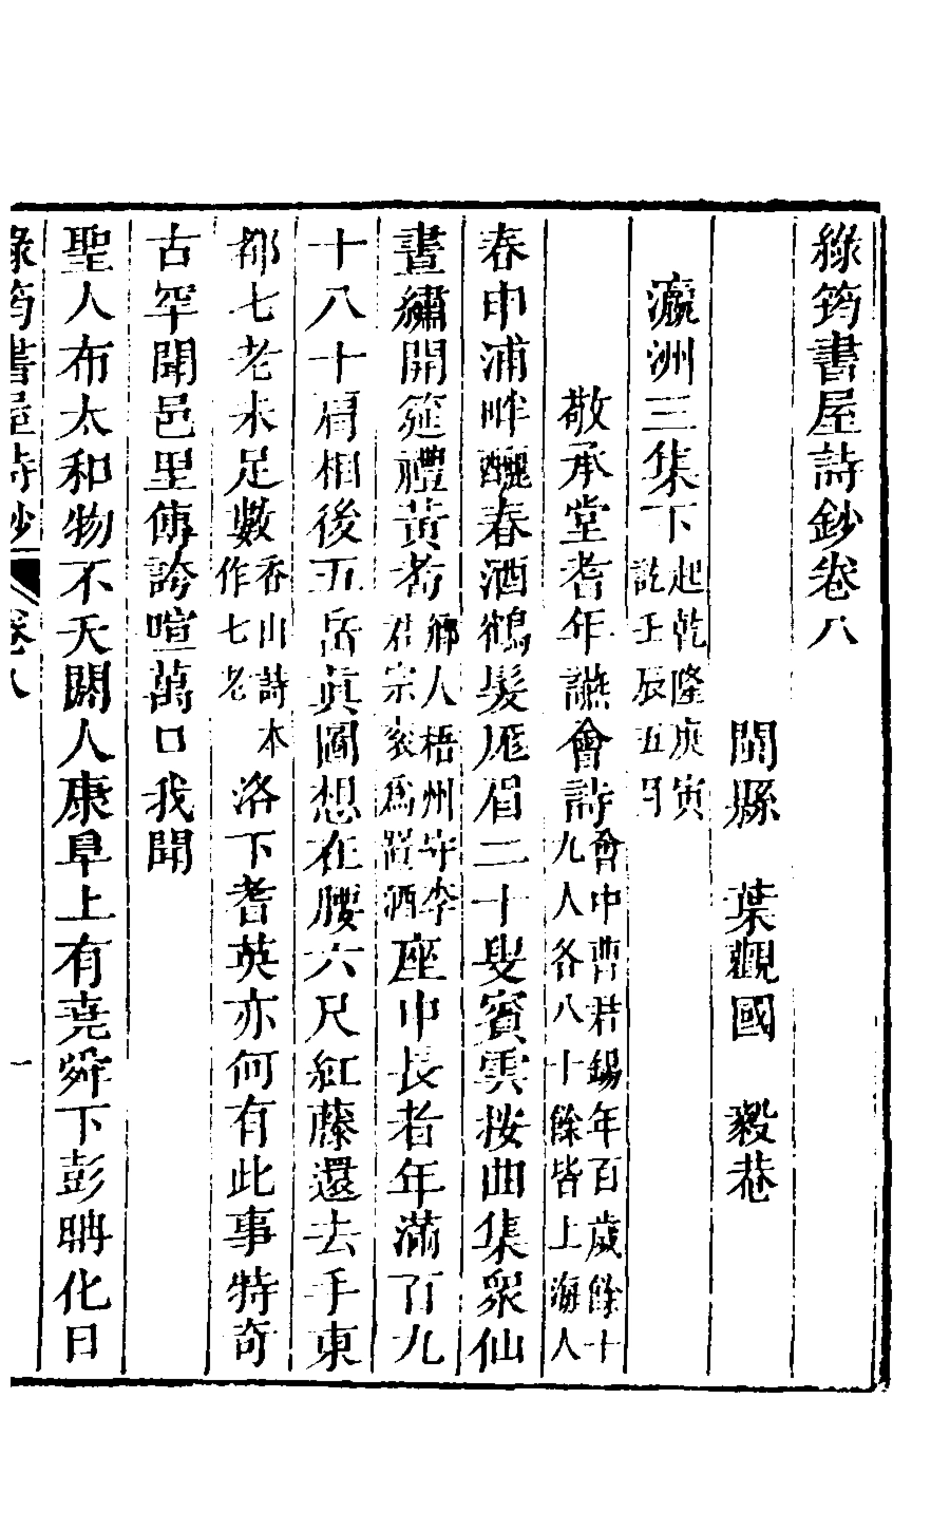 綠筠書屋詩鈔卷八
閩縣　葉觀國　毅菴
瀛洲三集下起乾隆庚寅訖壬辰五月
敬承堂耆年讌會詩會中曹君錫年百歲餘十九人各八十餘皆上海人
春申浦畔釃春酒鶴髮厖眉二十叟賓雲按曲集衆仙
晝繡開筵禮黃耇鄉人梧州守李君宗袁為置酒座中長者年滿百九
十八十肩相後五岳眞圖想在腰六尺紅藤還去手東
都七老未足數香山詩本作七老洛下耆英亦何有此事特奇
古罕聞邑里傳誇喧萬口我聞
聖人布太和物不夭閼人康阜上有堯舜下彭聃化日
綠筠書屋詩鈔　卷八　一